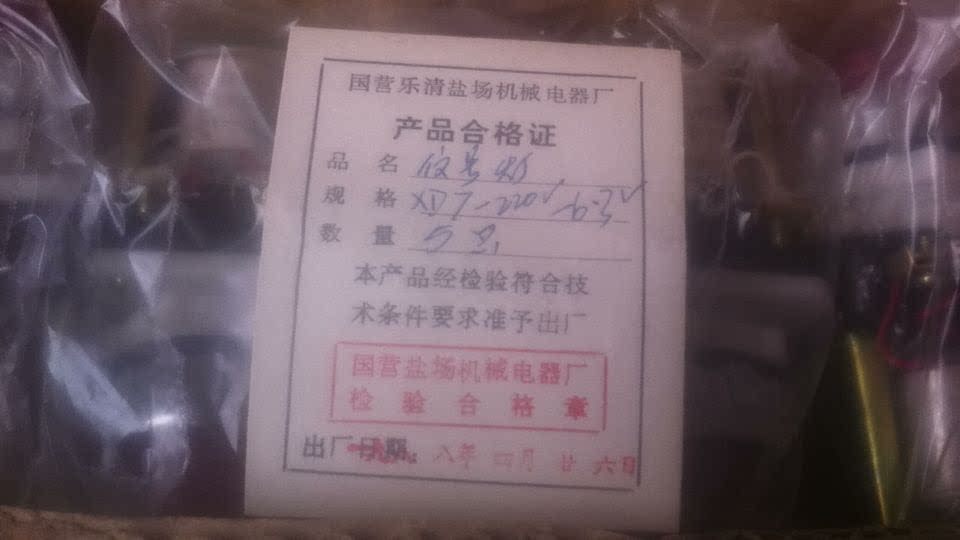 国营乐清盐场机械电器厂
产品合格证
品 名
规 格 XD7-220V-6.3V
数 量 5只
本产品经检验符合技
术条件要求准予出厂
国营盐场机械电器厂
检 验 合 格 章
出厂日期: 八年 四月 廿六日